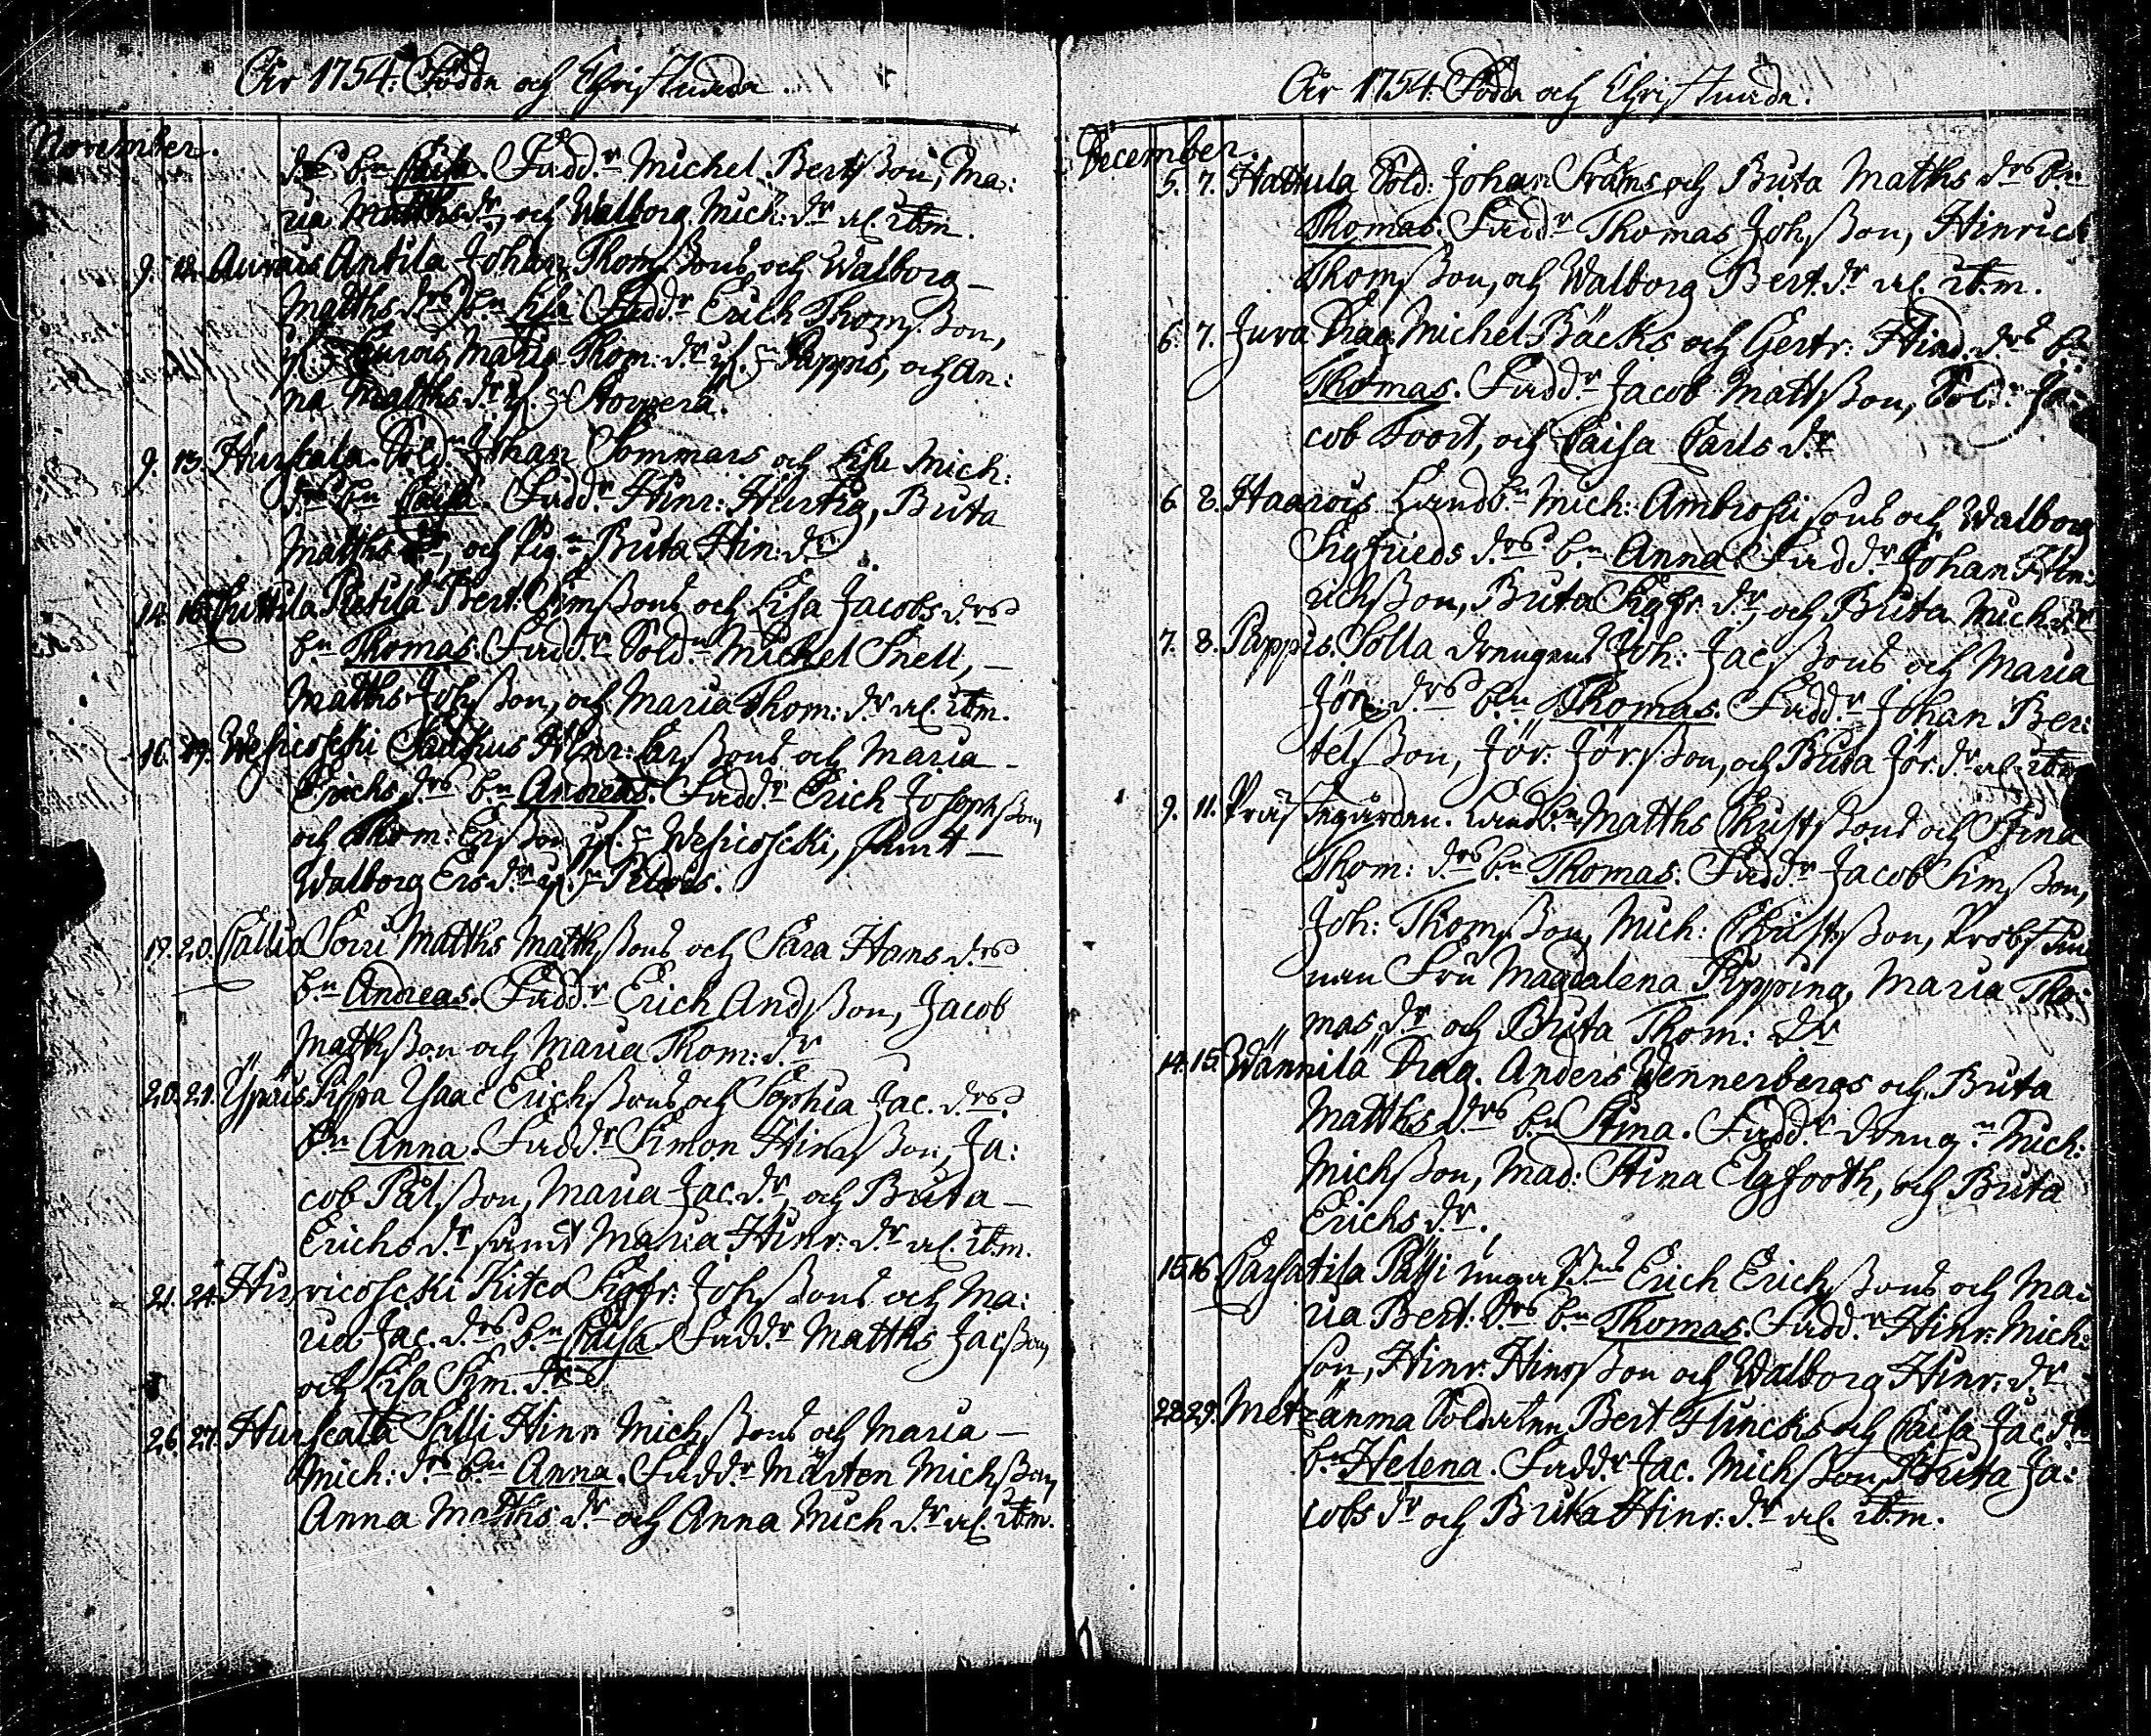 År 1754. Födde och Christnade.
November.
drs bn Caisa. Fadd.r Michel Bertsson, Ma:
ria Matthsdr, och Walborg Mich: dr al. itm.
9. 12. Auvais Antila Johan Thomssons och Walborg
Matths drs bn Lisa Fadd.r Erich Thomsson,
Maria Thom: dr Pappis, och An:
na Matths dr
9. 13. Hurskala Sold.n Johan Sommars och Lisa Mich:
drs bn Caisa. Fadd.r Hinr: Hurtig, Brita
Matths dr, och Pig.n Brita Hin: dr
14. Cuttila Pietilä Bert: Simssons och Lisa Jacobs drs
bn Thomas. Fadd.r Sold.n Michel Snell,
Matths Johsson, och Maria Thom: dr al. itm.
16. 17. Wesicoscki Hinr: Larssons och Maria
Erichs drs bn Andreas. Fadd.r Erich Josephsson
och Thom: Ersson Wesicoscki, samt
Walborg Ers dr
19. 20. Callio Sorri Matths Matthssons och Sara Hans drs
bn Andreas. Fadd.r Erich Andsson, Jacob
Matthsson och Maria Thom: dr
20. 21. Ypäis Pispa Ysaac Erichssons och Sophia Jac. drs
bn Anna. Fadd.r Simon Hinrsson, Ja:
cob Pålsson, Maria Jac. dr, och Brita
Erichs dr, samt Maria Hinr: dr al. itm.
21. 24. Hirvicoscki Kitco Sigfr: Johssons och Ma:
ria Jac. drs bn Caisa. Fadd.r Matths Jacsson
och Lisa Sim. dr
26. 27. Hurscala Salli Hinr Michssons och Maria
Mich: drs bn Anna. Fadd.r Mårten Michsson
Anna Matths dr och Anna Mich dr al. itm.
År 1754. Födde och Christnade.
December.
5. 7. Hattula Sold: Johan Främs och Brita Matths drs bn
Thomas. Fadd.r Thomas Johsson, Hinrich
Thomsson, och Walborg Bert. dr al. itm.
6. 7. Juva Drag. Michel Bäcks och Gertr: Hind. drs bn
Thomas. Fadd.r Jacob Mattsson, Sold.n Ja:
cob Toort, och Caisa Carls dr
6. 8. Haarois Landb.n Mich: Ambrosii sons och Walborg
Sigfrieds drs bn Anna. Fadd.r Johan Hin:
richsson, Brita Sigfr. dr, och Brita Mich dr
7. 8. Pappis. Jolla drengens Joh: Jacssons och Maria
Jör: drs bn Thomas. Fadd.r Johan Ber:
telsson, Jör: Jörsson, och Brita Jör. dr al. itm
9. 11. Prästegården. Landb.n Matths Christssons och Stina
Thom: drs bn Thomas. Fadd.r Jacob Simsson,
Joh: Thomsson, Mich: Christsson, Probstin
nan Fru Magdalena Pipping, Maria Tho:
mas dr och Brita Thom: dr
14. 15. Wännilä Drag. Anders Wennerbergs och Brita
Matths drs bn Stina. Fadd.r Dreng.n Mich:
Michsson, Mad: Stina Elgfooth, och Brita
Erichs dr.
15. 16. Carsatila Pässi unga Erich Erichssons och Ma:
ria Bert: drs bn Thomas. Fadd.r Hinr: Mich:
son, Hinr: Hinrsson och Walborg Hinr: dr
28. 29. Metzänma Soldaten Bert Flincks och Caisa Jac. drs
bn Helena. Fadd.r Jac. Michsson, Brita Ja:
cobs dr och Brita Hinr: dr al. itm.